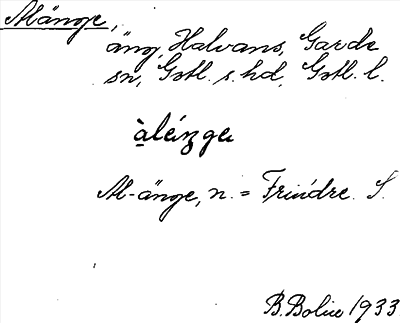 Alänge,
äng, Halvans, Garde
sn, Gotl. s. hd, Gotl. l.
àleiŋge
Al-änge, n. = S.
B. Bolin 1933